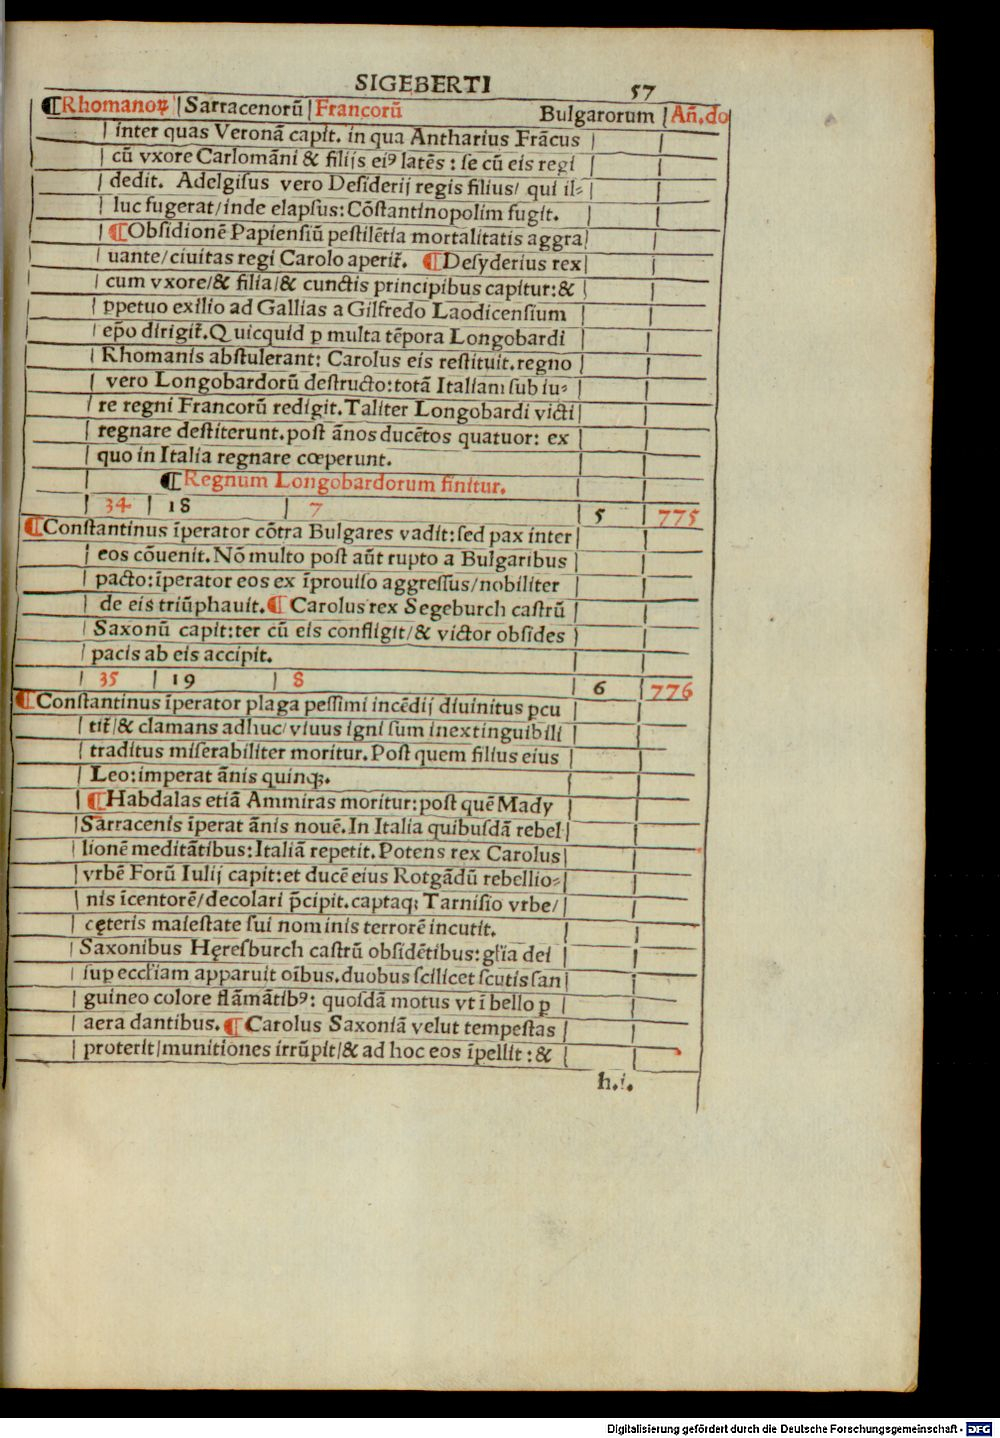 SIGEBERTI 57
¶Rhomanoꝝ | Sarracenorū | Francorū Bulgarorum | Añ.do
inter quas Veronā capit. in qua Antharius Frācus
cū vxore Carlomāni & filijs eiꝰ latēs : se cū eis regi
dedit. Adelgisus vero Desiderij regis filius/ qui il⸗
luc fugerat/inde elapsus:Cōstantinopolim fugit.
¶Obsidionē Papiensiū pestilētia mortalitatis aggra
uante/ciuitas regi Carolo aperit̃. ¶Desyderius rex
cum vxore/& filia/& cunctis principibus capitur:&
ꝓpetuo exilio ad Gallias a Gilfredo Laodicensium
ep̃o dirigit̃.Quicquid p multa tēpora Longobardi
Rhomanis abstulerant: Carolus eis restituit.regno
vero Longobardorū destructo:totā Italiam sub iu⸗
re regni Francorū redigit.Taliter Longobardi victi
regnare destiterunt.post ānos ducētos quatuor: ex
quo in Italia regnare cœperunt.
¶Regnum Longobardorum finitur.
34 | 18 | 7 | 5 | 775
¶Constantinus īperator cōtra Bulgares vadit:sed pax inter
eos cōuenit.Nō multo post aūt rupto a Bulgaribus
pacto:īperator eos ex īprouiso aggressus/nobiliter
de eis triūphauit.¶Carolus rex Segeburch castrū
Saxonū capit:ter cū eis confligit/& victor obsides
pacis ab eis accipit.
35 | 19 | 8 | 6 | 776
¶Constantinus īperator plaga pessimi incēdij diuinitus ꝑcu
tit̃/& clamans adhuc/viuus igni sum inextinguibili
traditus miserabiliter moritur.Post quem filius eius
Leo:imperat ānis quinqꝫ.
¶Habdalas etiā Ammiras moritur:post quē Mady
Sarracenis īperat ānis nouē.In Italia quibusdā rebel
lionē meditātibus:Italiā repetit.Potens rex Carolus
vrbē Forū Iulij capit:et ducē eius Rotgādū rebellio⸗
nis īcentorē/decolari p̄cipit.captaqꝫ Tarnisio vrbe/
cęteris maiestate sui nominis terrorē incutit.
Saxonibus Hęresburch castrū obsidētibus:gl̃ia dei
suꝑ eccl̃iam apparuit oībus.duobus scilicet scutis san
guineo colore flāmātibꝰ: quosdā motus vt ī bello ꝑ
aera dantibus.¶Carolus Saxoniā velut tempestas
proterit/munitiones irrūpit/& ad hoc eos īpellit :&
h.i.
Digitalisierung gefördert durch die Deutsche Forschungsgemeinschaft - DFG